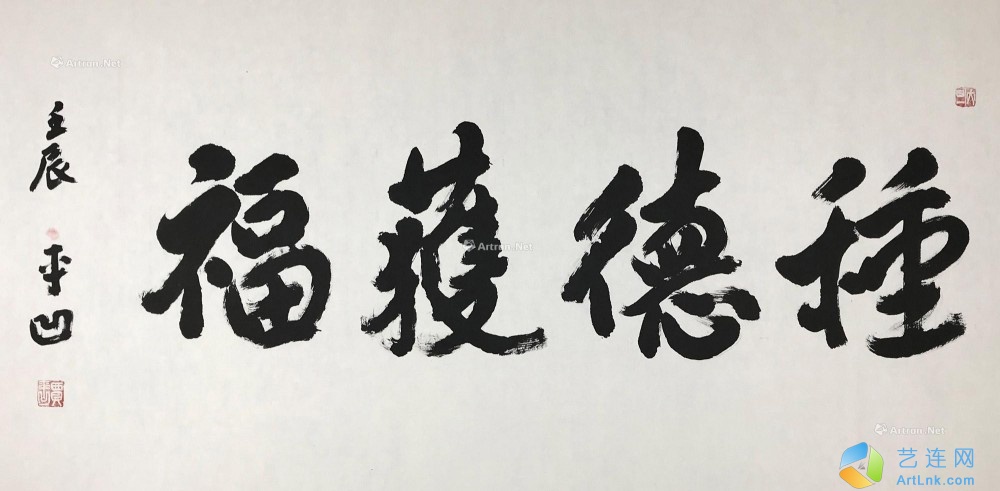 種德獲福
壬辰
平凹
Artron.Net
Artron.Net
Artron.Net
艺连网
ArtLnk.com